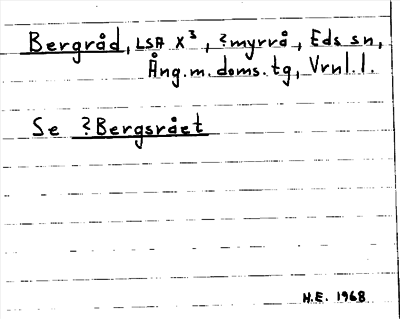 Bergråd, LSA X³, ?myrrå, Eds sn,
Ång.m.doms.tg, Vrml.l.
Se ?Bergsrået
H.E. 1968